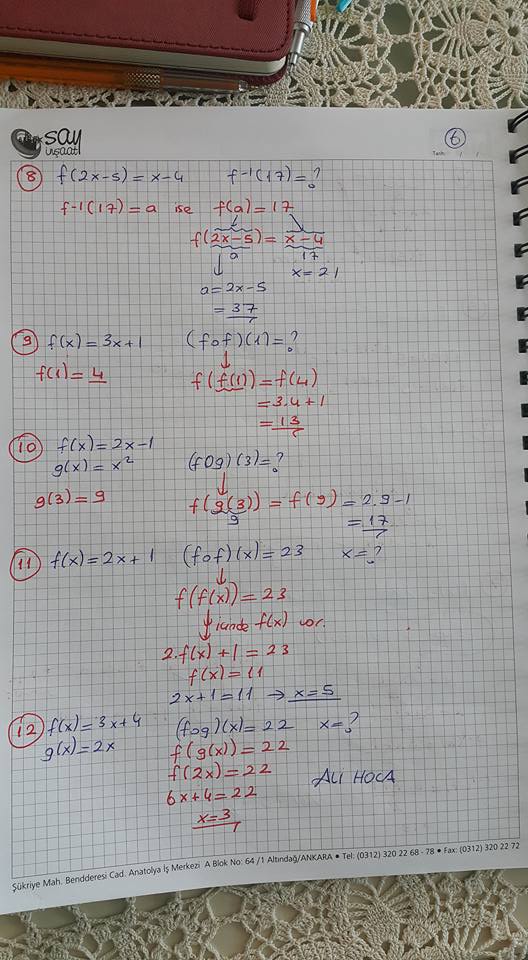 say
inşaat
6
Tarih: / /
8 f(2x-5) = x-4 f-¹(17) = ?
f-¹(17) = a ise f(a) = 17
f(2x-5) = x-4
a 17
x = 21
a = 2x-5
= 37
9 f(x) = 3x+1 (fof)(1) = ?
f(1) = 4 f(f(1)) = f(4)
= 3.4+1
= 13
10 f(x) = 2x-1
g(x) = x² (fog)(3) = ?
g(3) = 9 f(g(3)) = f(9) = 2.9-1
9 = 17
11 f(x) = 2x+1 (fof)(x) = 23 x = ?
f(f(x)) = 23
içinde f(x) var.
2.f(x)+1 = 23
f(x) = 11
2x+1 = 11 → x = 5
12 f(x) = 3x+4 (fog)(x) = 22 x = ?
g(x) = 2x f(g(x)) = 22
f(2x) = 22
6x+4 = 22 ALİ HOCA
x = 3
Şükriye Mah. Bendderesi Cad. Anatolya İş Merkezi A Blok No: 64 /1 Altındağ/ANKARA • Tel: (0312) 320 22 68 - 78 • Fax: (0312) 320 22 72